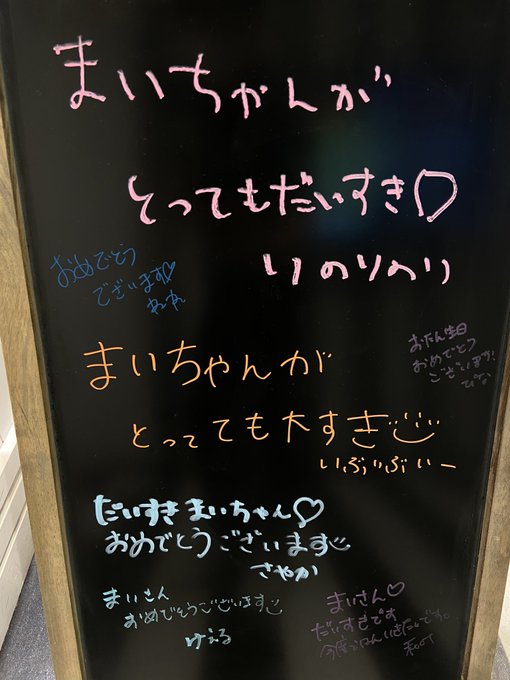 まいちゃんが
とってもだいすき♡
りのりのり
おめでとう
ございます♡
ねね
おたん生日
おめでとう
ございます!
ひな
まいちゃんが
とっても大すき
いぶいぶいー
だいすき まいちゃん♡
おめでとうございます
さやか
まいさん
おめでとうございます
けえる
まいさん♡
だいすきです
今度ごはんいきたいです。